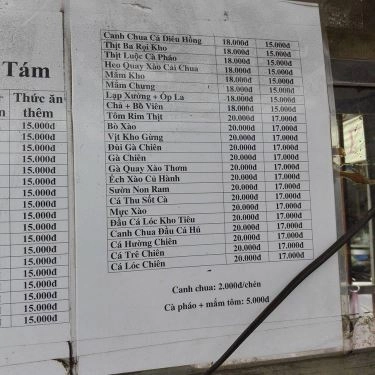 Tám
Thức ăn
thêm
15.000đ
15.000đ
15.000đ
15.000đ
15.000đ
15.000đ
15.000đ
15.000đ
15.000đ
15.000đ
15.000đ
15.000đ
15.000đ
15.000đ
15.000đ
15.000đ
15.000đ
15.000đ
Canh Chua Cá Diêu Hồng 18.000đ 15.000đ
Thịt Ba Rọi Kho 18.000đ 15.000đ
Thịt Luộc Cà Pháo 18.000đ 15.000đ
Heo Quay Xào Cải Chua 18.000đ 15.000đ
Mắm Kho 18.000đ 15.000đ
Mắm Chưng 18.000đ 15.000đ
Lạp Xưởng + Ốp La 18.000đ 15.000đ
Chả + Bò Viên 18.000đ 15.000đ
Tôm Rim Thịt 20.000đ 17.000đ
Bò Xào 20.000đ 17.000đ
Vịt Kho Gừng 20.000đ 17.000đ
Đùi Gà Chiên 20.000đ 17.000đ
Gà Chiên 20.000đ 17.000đ
Gà Quay Xào Thơm 20.000đ 17.000đ
Ếch Xào Củ Hành 20.000đ 17.000đ
Sườn Non Ram 20.000đ 17.000đ
Cá Thu Sốt Cà 20.000đ 17.000đ
Mực Xào 20.000đ 17.000đ
Đầu Cá Lóc Kho Tiêu 20.000đ 17.000đ
Canh Chua Đầu Cá Hú 20.000đ 17.000đ
Cá Hường Chiên 20.000đ 17.000đ
Cá Trê Chiên 20.000đ 17.000đ
Cá Lóc Chiên 20.000đ 17.000đ
Canh chua: 2.000đ/chén
Cà pháo + mắm tôm: 5.000đ